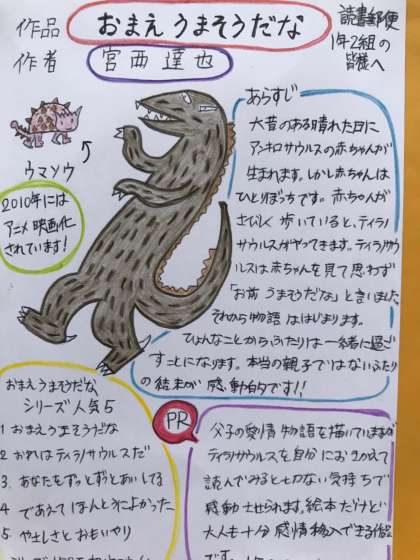 作品 おまえうまそうだな
作者 宮西達也
読書郵便
1年2組の
皆様へ
ウマソウ
2010年には
アニメ映画化
されています!
あらすじ
大昔のある晴れた日に
アンキロサウルスの赤ちゃんが
生まれます。しかし赤ちゃんは
ひとりぼっちです。赤ちゃんが
さびしく歩いていると、ティラノ
サウルスがやってきます。ティラノサ
ウルスは赤ちゃんを見て思わず
「お前うまそうだな」と言いました。
それから物語ははじまります。
ひょんなことからふたりは一緒に過ご
すことになります。本当の親子ではないふたり
の結末が感動的です!!
おまえうまそうだな
シリーズ人気5
1 おまえうまそうだな
2 おれはティラノサウルスだ
3. あなたをずっとずっとあいしてる
4 であえてほんとうによかった
5 やさしさとおもいやり
PR
父子の愛情物語を描いていますが
ティラノサウルスを自分におきかえて
読んでみるとせつない気持ちで
感動させられます。絵本だけど
大人も十分感情移入できる作品
です。